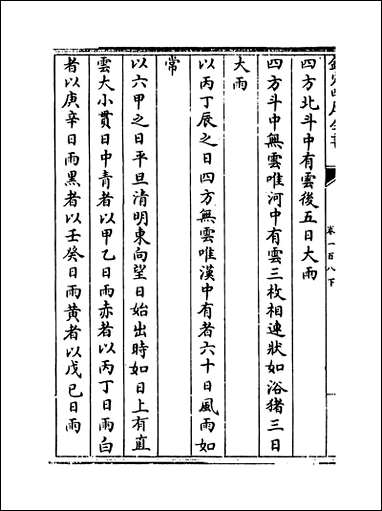 欽定四庫全書
卷一百八下
四方北斗中有雲後五日大雨
四方斗中無雲唯河中有雲三枚相連狀如浴猪三日
大雨
以丙丁辰之日四方無雲唯漢中有者六十日風雨如
常
以六甲之日平旦清明東向望日始出時如日上有直
雲大小貫日中青者以甲乙日雨赤者以丙丁日雨白
者以庚辛日雨黑者以壬癸日雨黄者以戊巳日雨